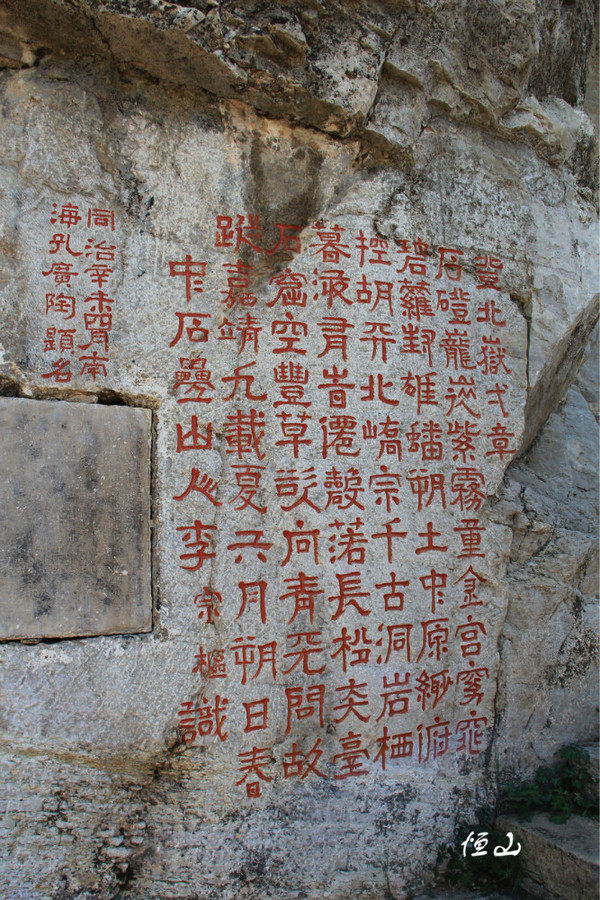 登北嶽弌章
石磴巃嵷紫霧重金宮窈窕
碧蘿封雄蟠朔土中原緲俯
控胡天北嶠宗千古洞岩栖
暮液有旹僊聲落長松奕臺
石窟空豐草欲向青天問故
蹤嘉靖九載夏六月朔日春
中石疊山人李宗樞識
同治辛未四月南
海孔廣陶題名
恒山